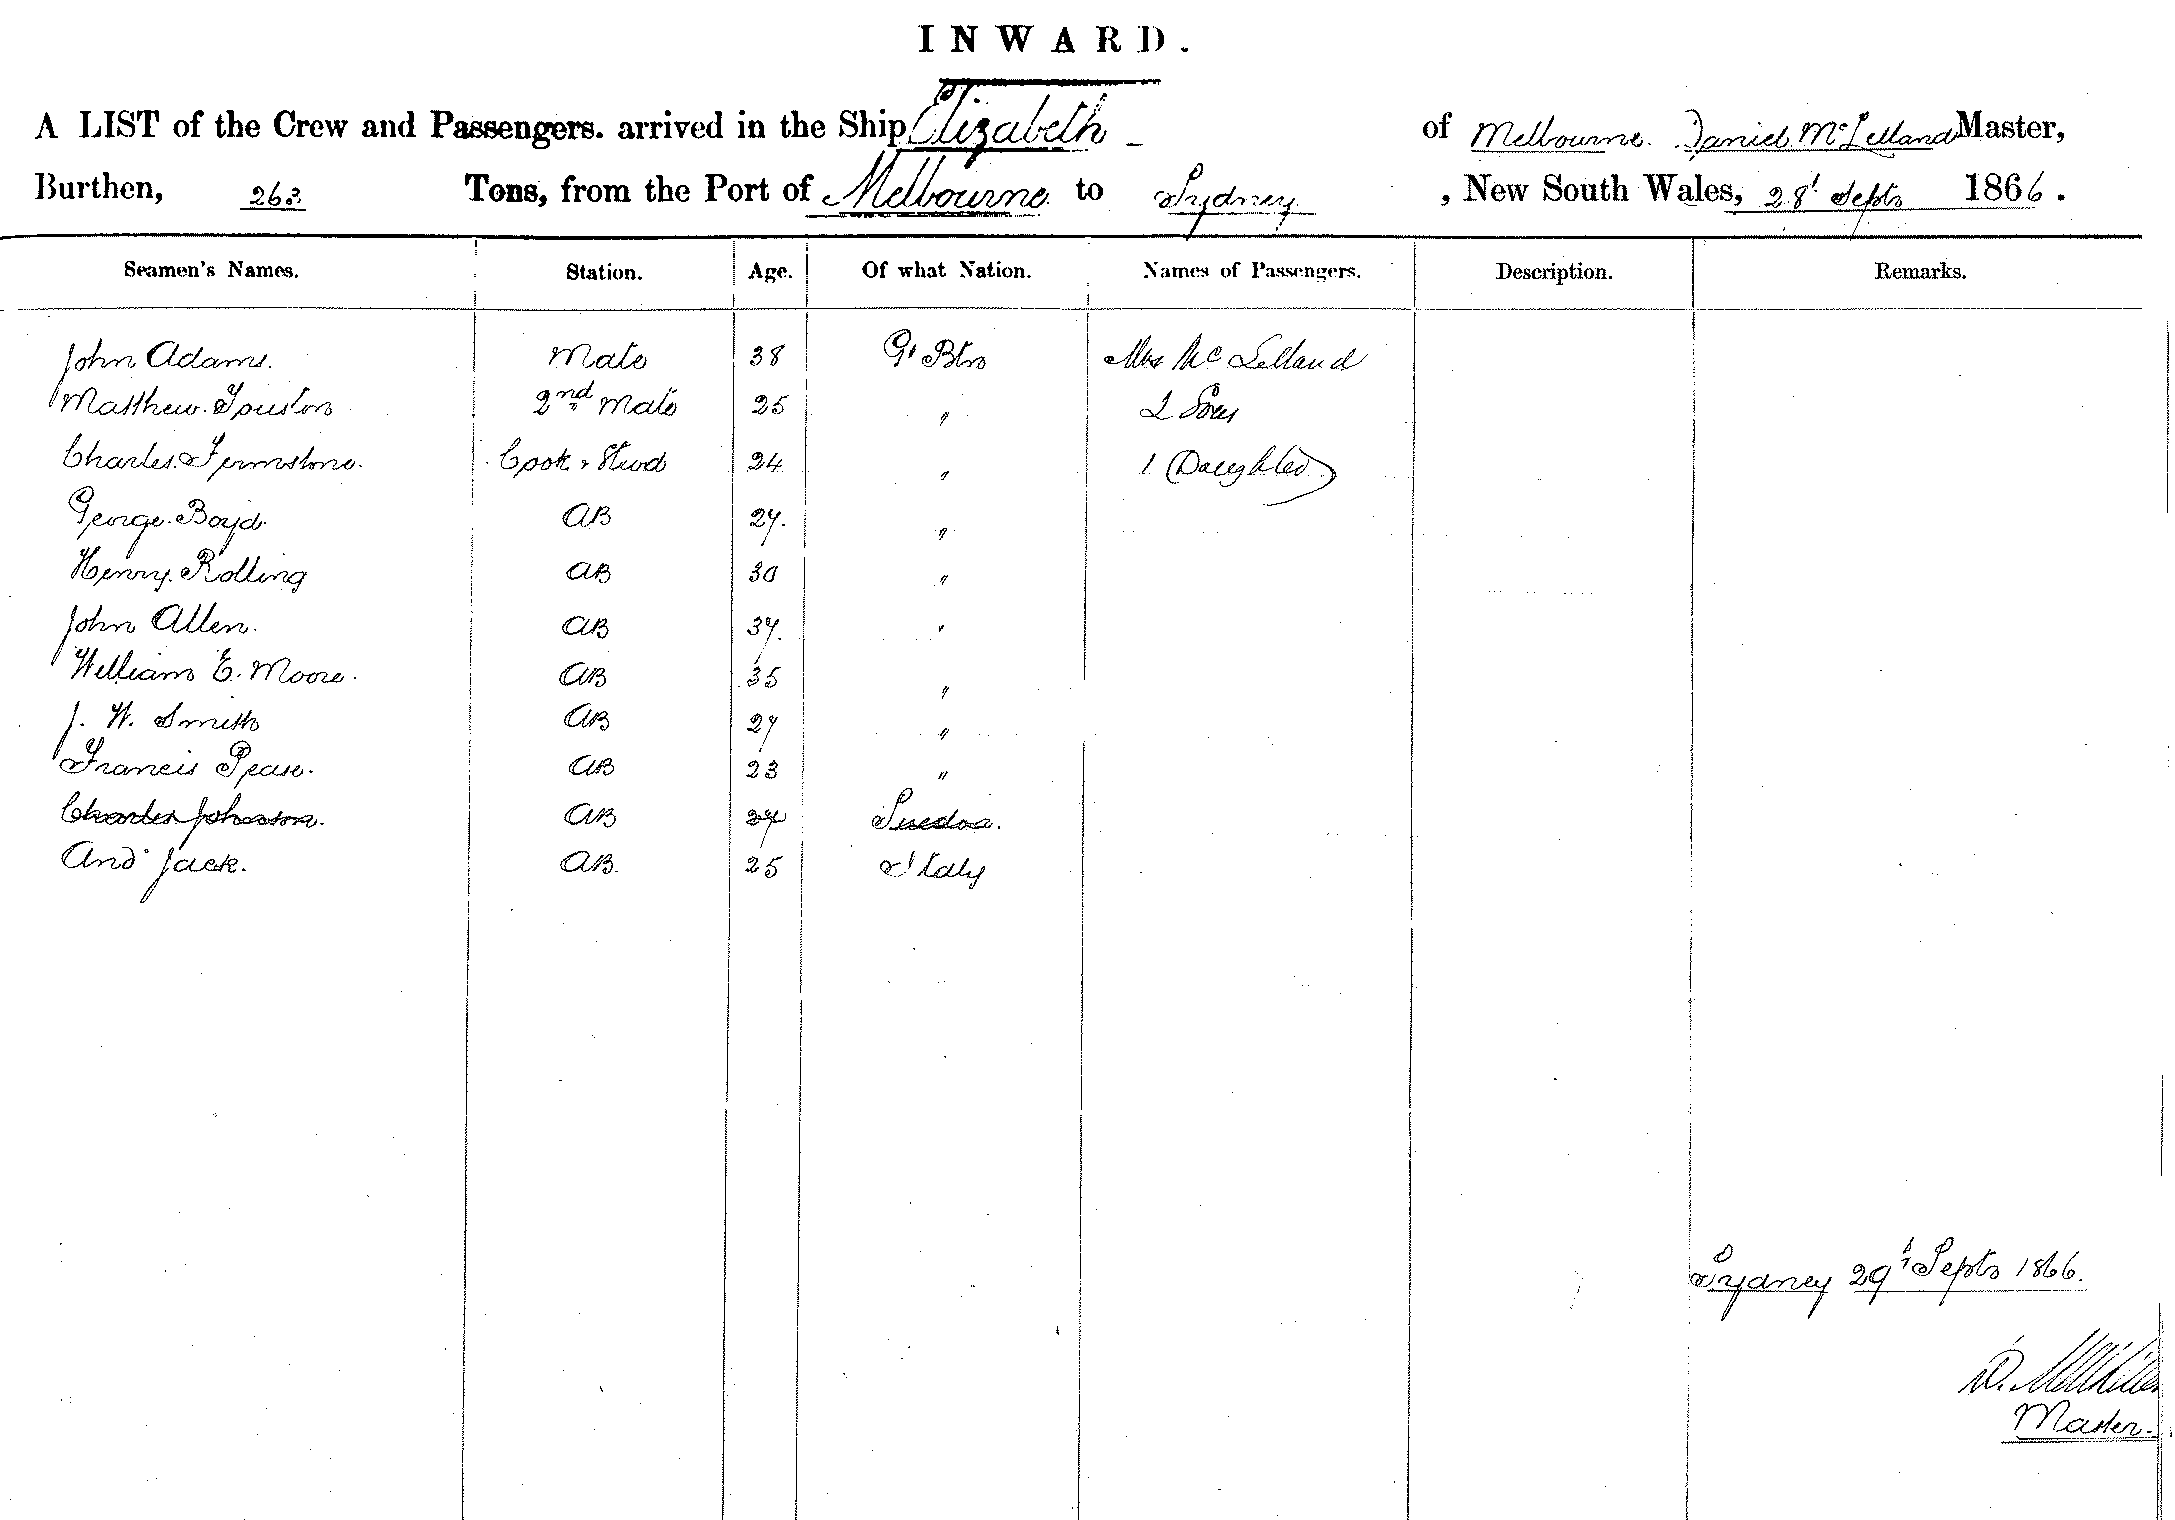 INWARD.
A LIST of the Crew and Passengers. arrived in the Ship Elizabeth of Melbourne. Daniel McLelland Master,
Burthen, 263 Tons, from the Port of Melbourne to Sydney, New South Wales, 28t Septr 1866.
Seamen's Names. Station. Age. Of what Nation. Names of Passengers. Description. Remarks.
John Adams. Mate 38 Gt Btn Mrs McLelland
Matthew 2nd Mate 25 " 2 Sons
Charles Cook & Stwd 24 " 1 Daughter
George Boyd. AB 27. "
Henry Rolling AB 30 "
John Allen. AB 37. "
William E. Moore. AB 35 "
J. W. Smith AB 27 "
Francis Pease. AB 23 "
Charles Johnson. AB 27 Sweden.
Andw Jack. AB. 25 Italy
Sydney 29t Septr 1866.
D.
Master.